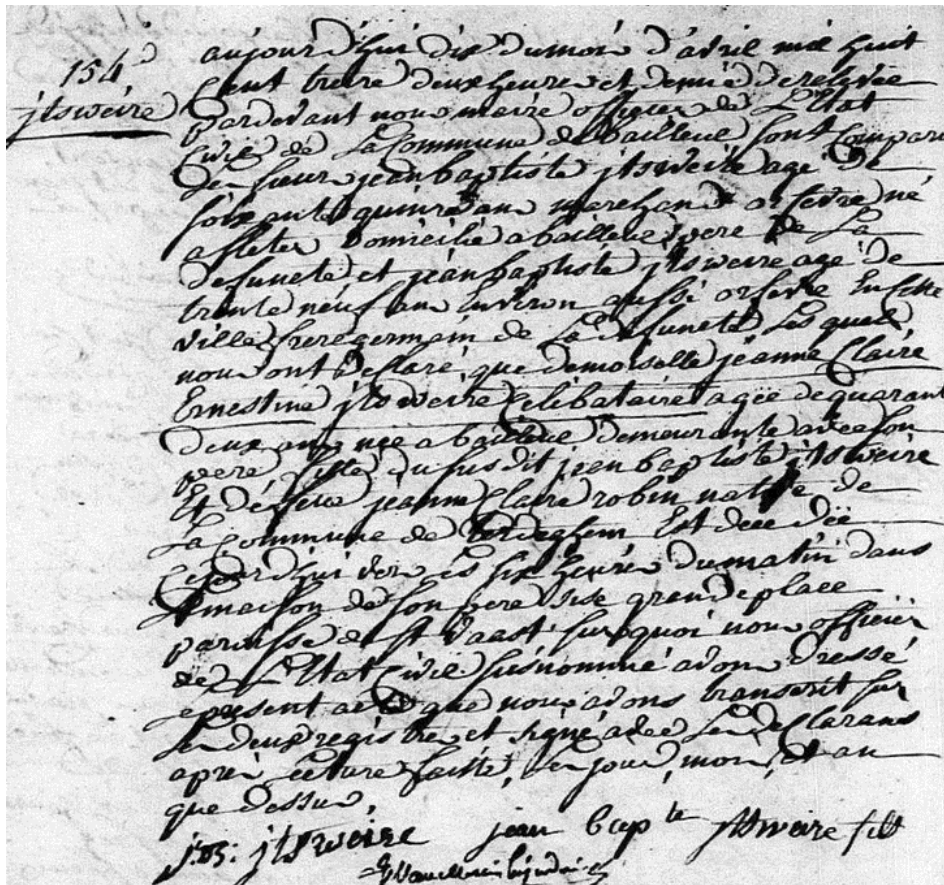 154
jtsweire
aujourd'hui dix du mois d'avril mil huit
cent treize deux heure et demie de relevée
pardevant nous maire officier de L'Etat
Civil de La Commune de bailleul sont Compar
Les sieurs jean baptiste jtsweire agé de
soixante quinze ans marchand orfevre né
a fletre domicilié a bailleul pere de La
defunete et jean baptiste jtsweire agé de
trente neuf ans Environ aussi orfevre En cette
ville frere germain de La defunete Les quels
nous ont declaré que demoiselle jeanne Claire
Ernestine jtsweire Celibataire agée de quarant
deux ans née a bailleul demeurante avec son
pere fille du susdit jean baptiste jtsweire
Et de feue jeanne Claire robin native de
La Commune de terdeghem Est decedée
cejourd'hui vers les six heures du matin dans
La maison de son pere sise grande place
paroisse de st vaast sur quoi nous officier
de L'Etat Civil susnommé avons dressé
le present acte que nous avons transcrit sur
Les deux registre et signé avec Les declarans
aprés lecture faitte, Les jour, mois, Et an
que dessus,
j:b: jtsweire jean bapte jtsweire fils